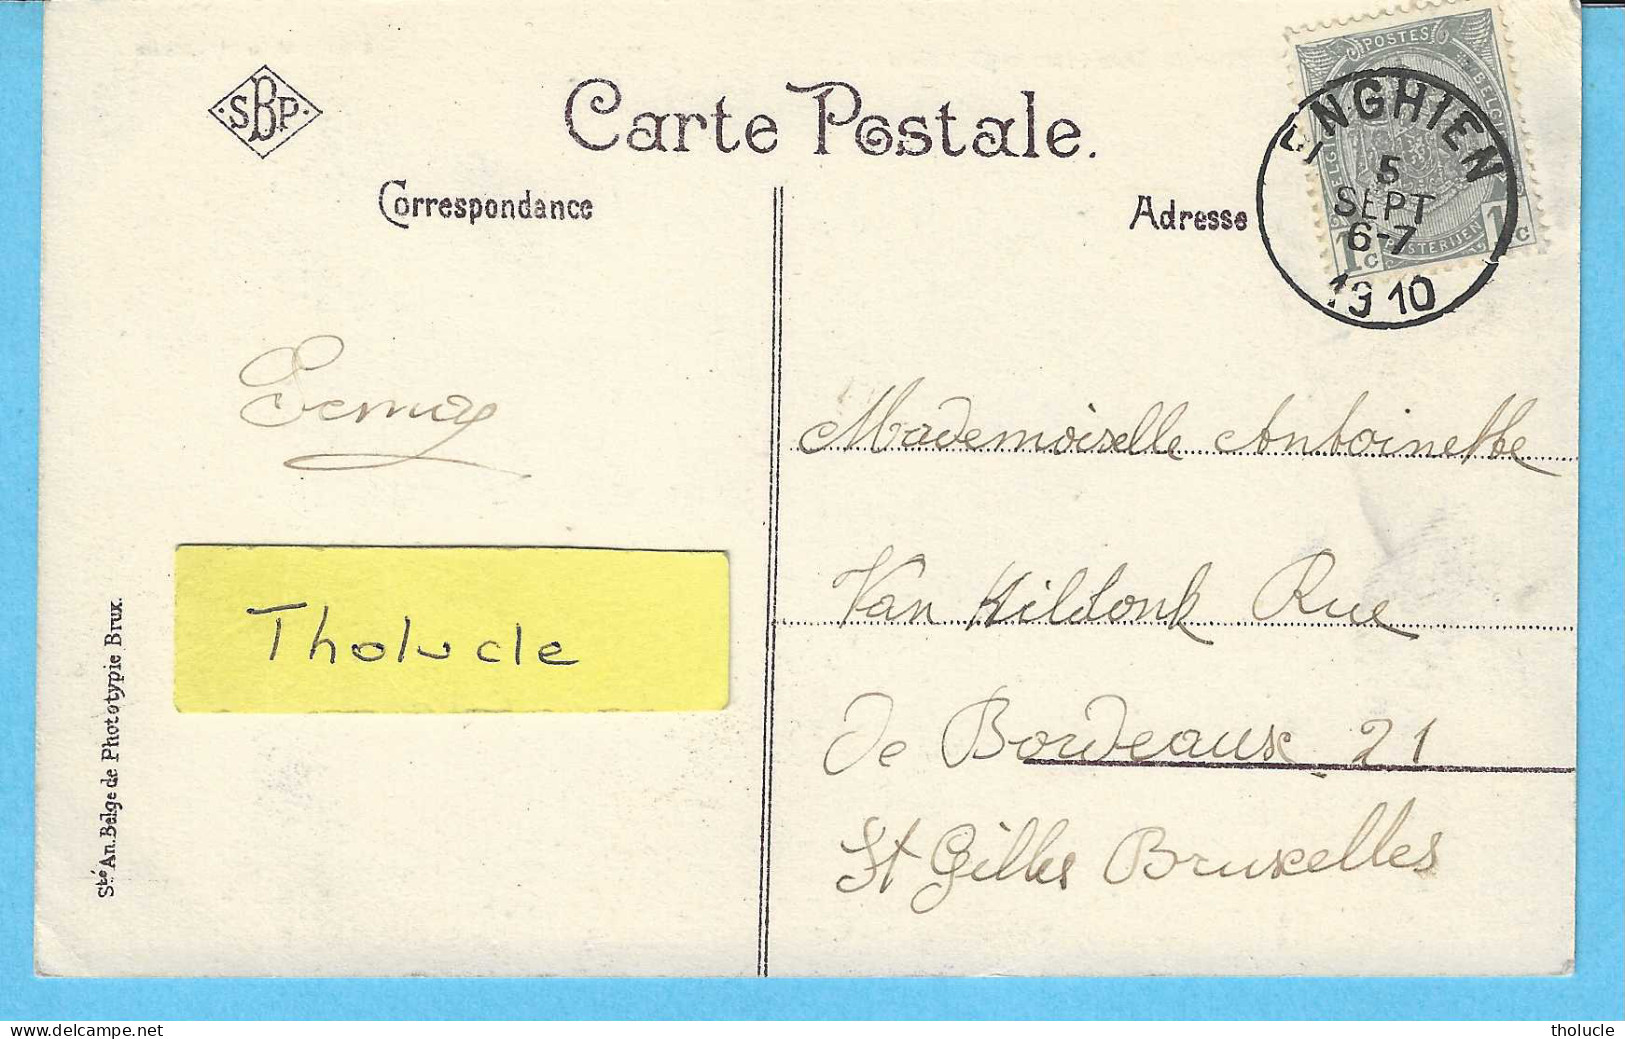 SBP
Carte Postale.
Correspondance
Adresse
POSTES
BELGIQUE
BELGIE
POSTERIJEN
1c 1c
ENGHIEN
5
SEPT
6-7
1910
Mademoiselle Antoinette
Van Hildonk Rue
de Bordeaux 21
St Gilles Bruxelles
Tholucle
Sté An. Belge de Phototypie Brux.
www.delcampe.net
tholucle